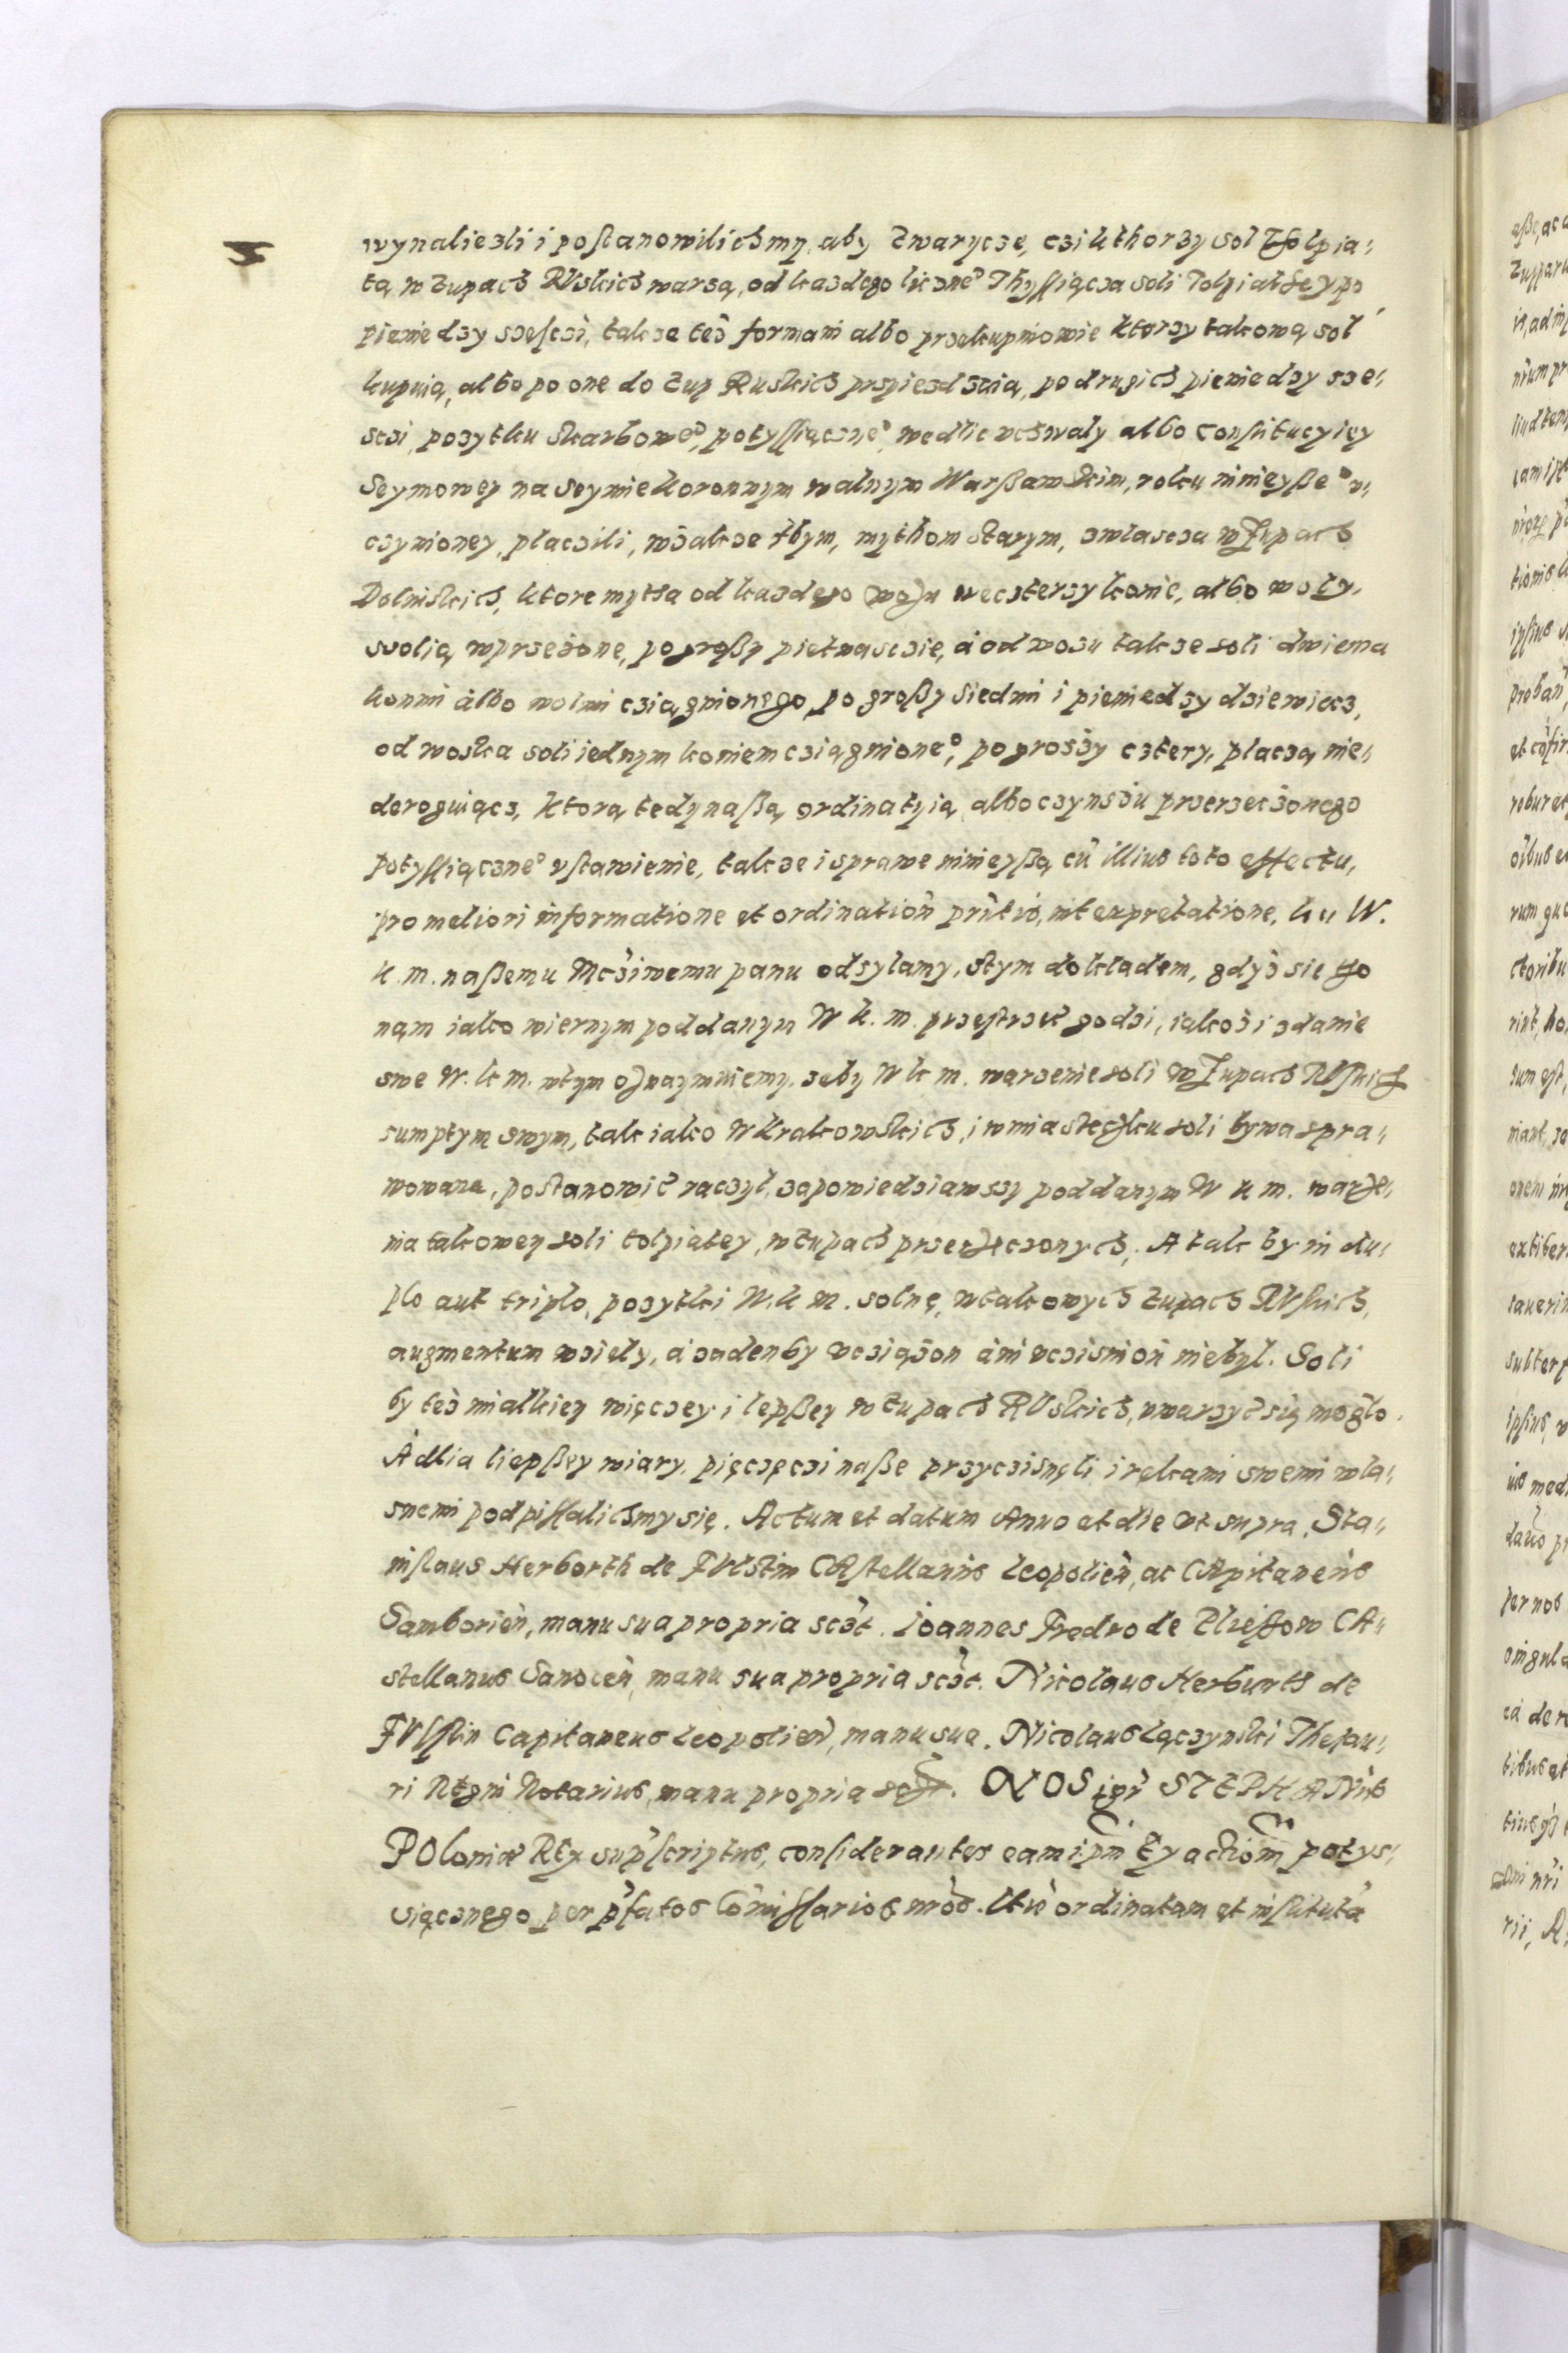 wynaliezli i postanowilichmy, aby Zwarycze, czi kthorzy sol Tolpia-
tą w Zupach RUskich warzą, od kazdego liczne° Thyssiącza soli Tolpiathey po
pieniedzy szesczi, takze też formani albo przekupniowie ktorzy takową sol
kupuią, albo po one do Zup Ruskich przyiezdzaią, po drugich pieniedzy sze-
sczi, pozytku skarbowe°, potyssiączne°, wedlie vchwaly albo Constitucyiey
Seymowey na Seymie koronnym walnym Warßawskim, roku ninieyße° v-
czynioney, placzili, wszakze thym, mythom starym, zwlascza w Zupach
Dolnskich, ktore mytha od kazdego wozu we czterzy konie, albo woly,
ssolią wprzeżone, po großy pietnasczie, á od wozu takze soli dwiema
konmi albo wolmi cziągnionego, po großy siedmi i pieniedzy dziewiecz,
od woska soli iednym koniem cziągnione°, po groszy cztery, placzą nie-
deroguiącz, ktorą tedy naßą ordinatyią albo czynszu przerzeczonego
potyssiączne° vstawienie, takze i sprawe ninieyßą cū illius toto effectu,
pro meliori informatione et ordination prńtis, interpretatione, ku W.
K. m. naßemu Mcziwemu panu odsylamy, stym dokladem, gdyż sie tho
nam iako wiernym poddanym W K. m. przestrzec godzi, iakoż i zdanie
swe W. K m. wtym oznaymuiemy, zeby W K m. warzenie soli w Zupach RUskich
sumptym swym, tak iako W Krakowskich, i w miasteczku soli bywa spra-
wowana, postanowić raczyl, zapowiedziawszy poddanym W K m. warze-
nia takowey soli tolpiatey, w Zupach przerzeczonych, A tak by in du-
plo aut triplo, pozytki W. K m. solne, w takowych Zupach RUskich,
augmentum wziely, á zaden by vcziążon áni vczisnion niebyl. Soli
by też mialkiey więczey i lepßey w Zupach RUskich, vwarzyć się moglo.
A dlia liepßey wiary, pięczęczi naße przyczisnęli i rękami swemi wla-
snemi podpissalichmy się. Actum et datum Anno et die vt supra, Sta-
nislaus Herborth de FUlstin CAstellanus Leopolień, ac CApitaneus
Samborień, manu sua propria sczt. Ioannes Fredro de Plieszow CA-
stellanus Sanoceń, manu sua propria sczt. Nicolaus Herburth de
FUlstin Capitaneus Leopolień, manu sua. Nicolaus Lączynski Thesau-
ri Regni Notarius, manu propria sczt. NOS igr̃ STEPHANUS
POloniæ REx supscriptus, considerantes eam ipm Exactiom̃ potys-
siącznego per pfatos Cōmissarios nr̃os. Vtī ordinatam et institutā